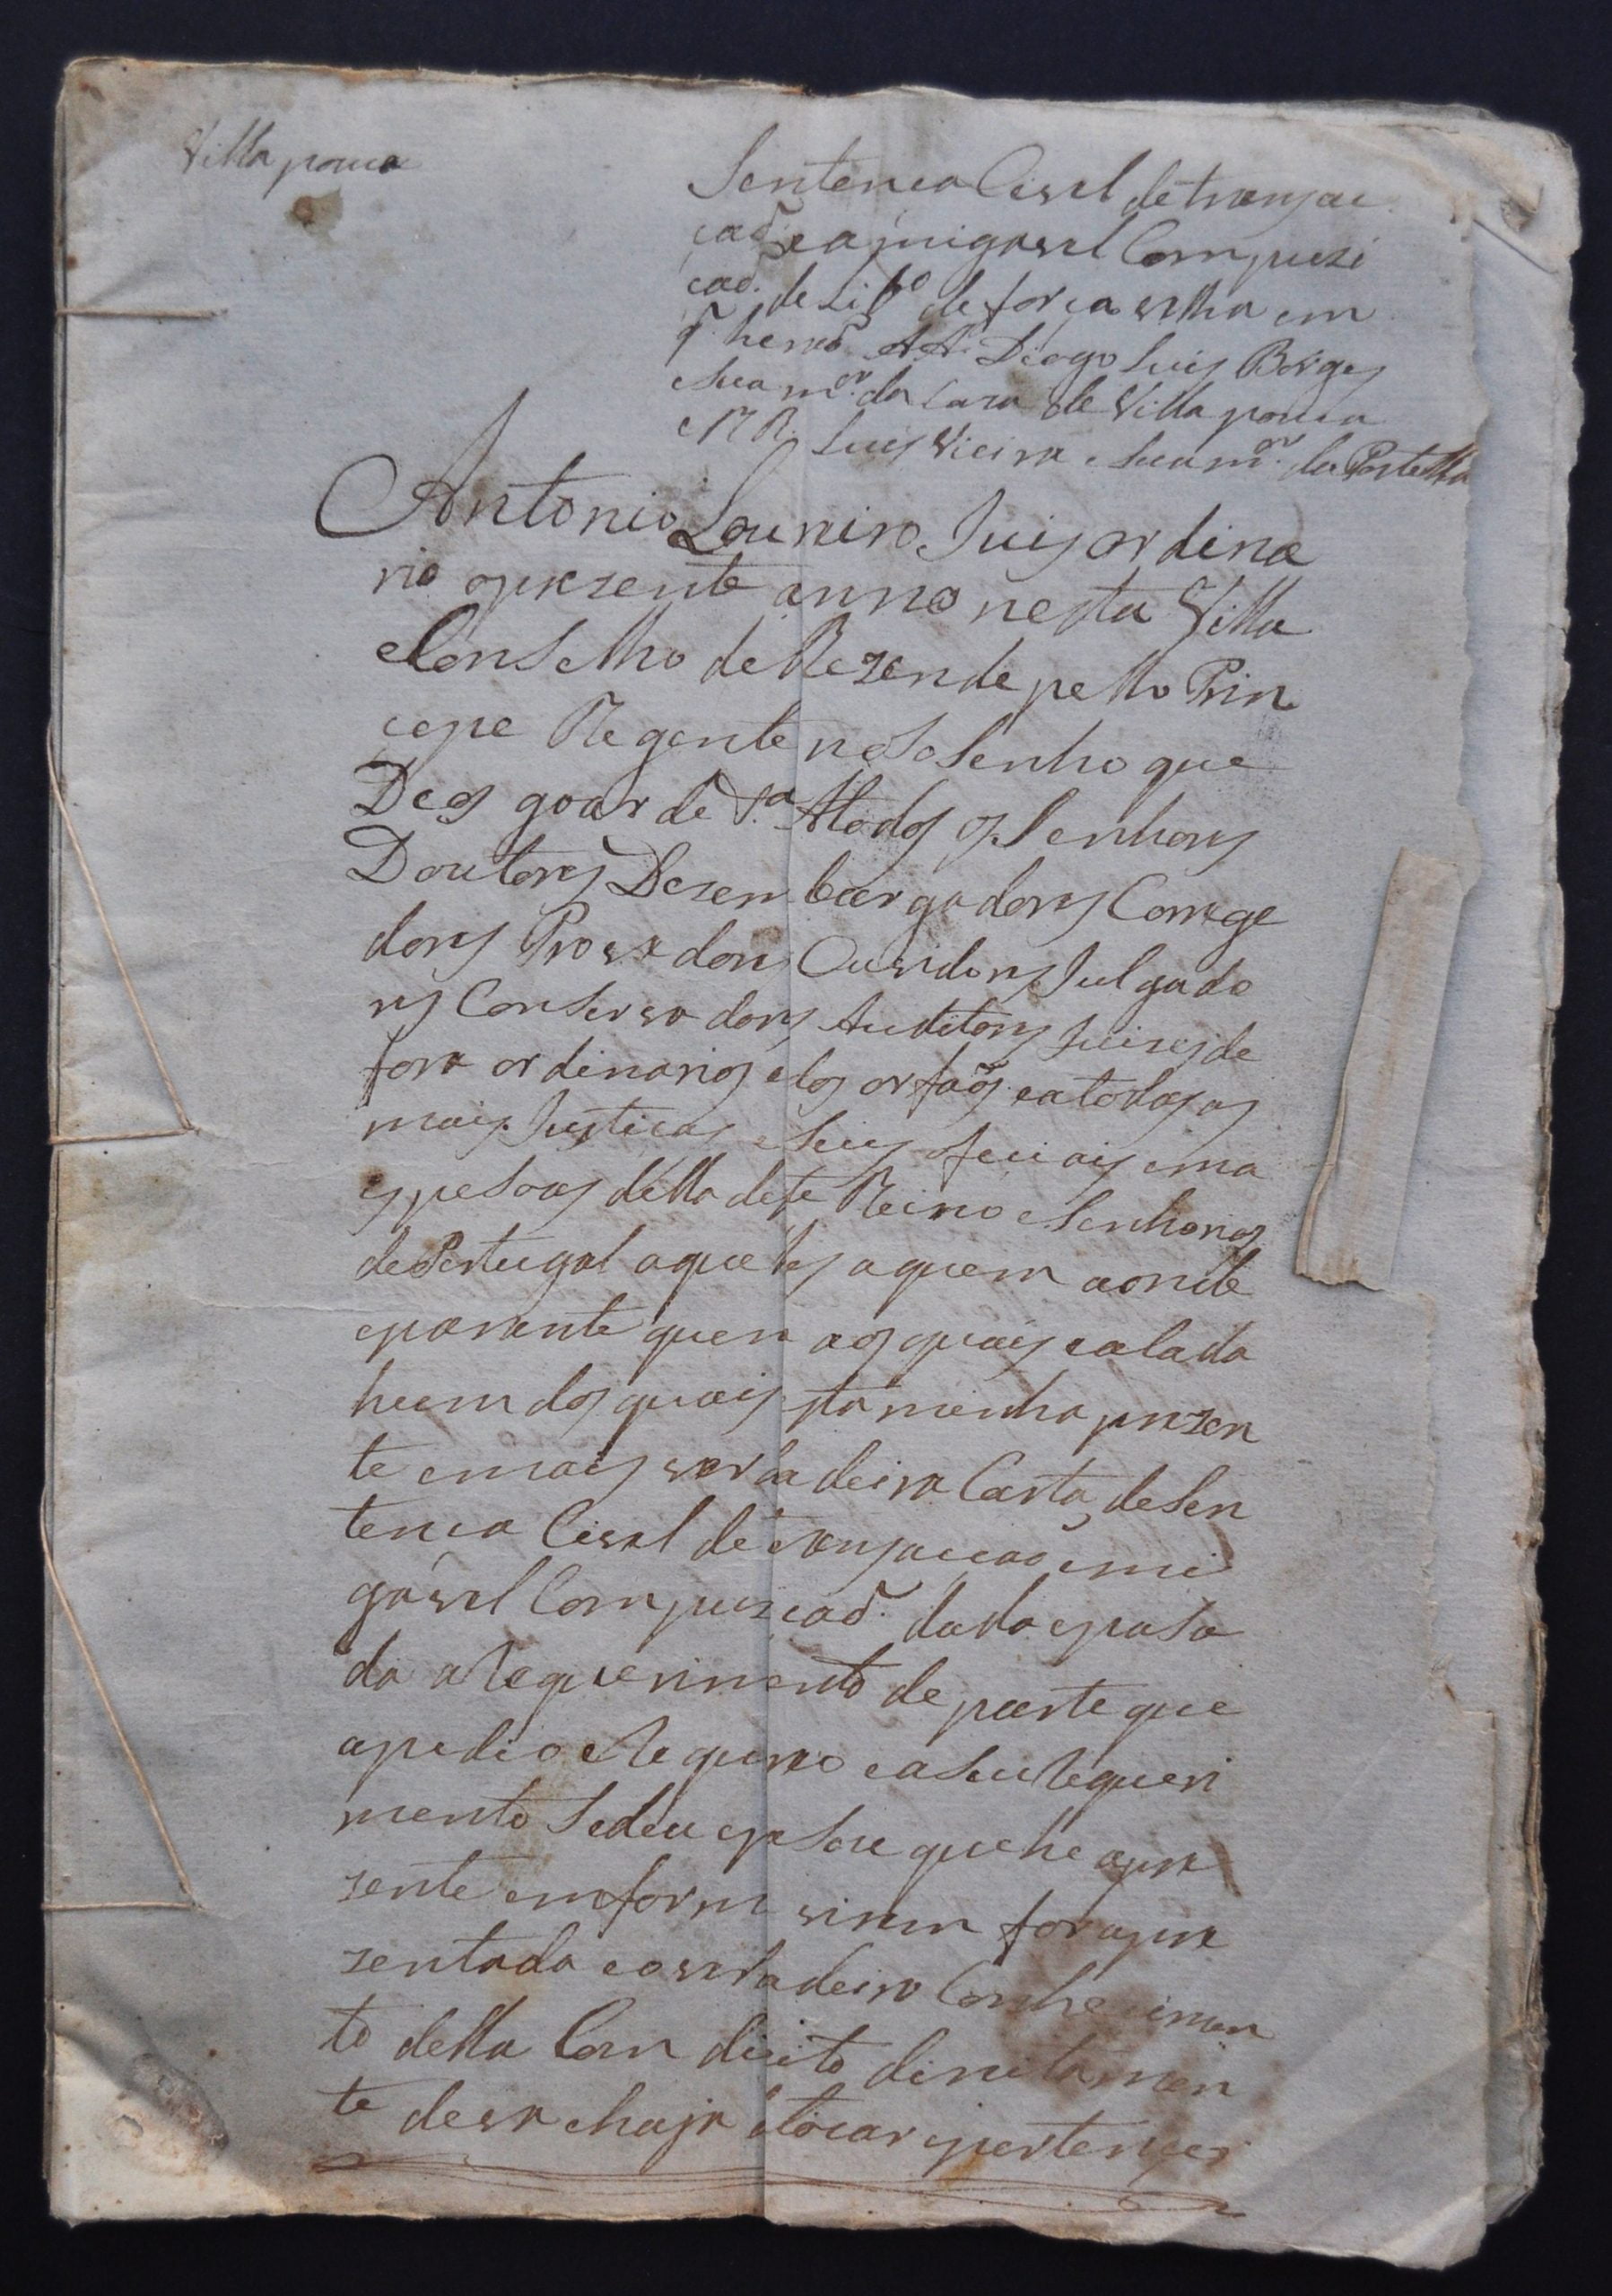 Villa pouca
Sentenca Civel de transac
çaõ e amigavel Compuzi
caõ. de Lib.º de força velha em
q̃ heraõ AA Diogo Luis Borges
e Sua m.er da Caza de Villa pouca
e RR. Luis Vieira e Sua m.er da Portella
Antonio Loureiro Juis ordina
rio o prezente anno nesta Villa
e Conselho de Rezende pello Prin
cepe Regente noso Senhor que
Deos goarde V.a A todos os Senhores
Doutores Dezembargadores Correge
dores Provedores Ouvidores Julgado
res Conservadores Auditores Juizes de
fora ordinarios e dos orfaõs. e a todas as
mais Justicas e Seus oficiais e ma
es pesoas della deste Reino e Senhorios
de Portugal aqueles a quem aonde
e parante quem aos quais e a cada
hum dos quais esta minha prezen
te e mais verdadeira Carta de Sen
tenca Civel de transaccaõ e mi
gavel Compuzicaõ. dada e pasa
da a Requerimento de parte que
a pedio e Requereo e a Seu Requeri
mento Se deu e pasou que he a pre
zente em forma virem for apre
zentada e o verdadeiro Conhecimen
to della Com direito direitamen
te deva e haja e tocar e pertencer